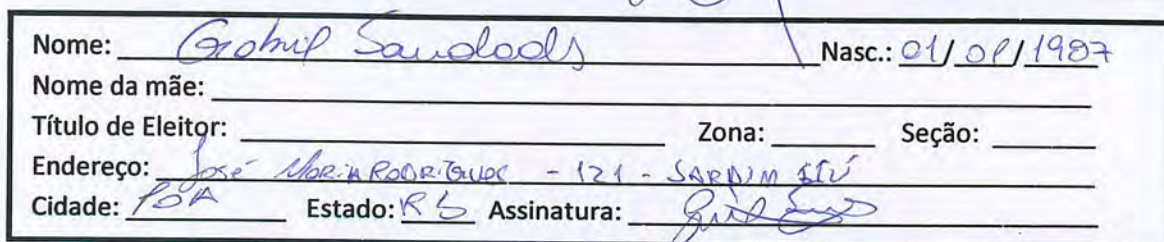 Nome: Gabriel Nasc.: 01/ /1987
Nome da mãe:
Título de Eleitor: Zona: Seção:
Endereço: José Maria Rodrigues - 121 - JARDIM ITÚ
Cidade: POA Estado: RS Assinatura: